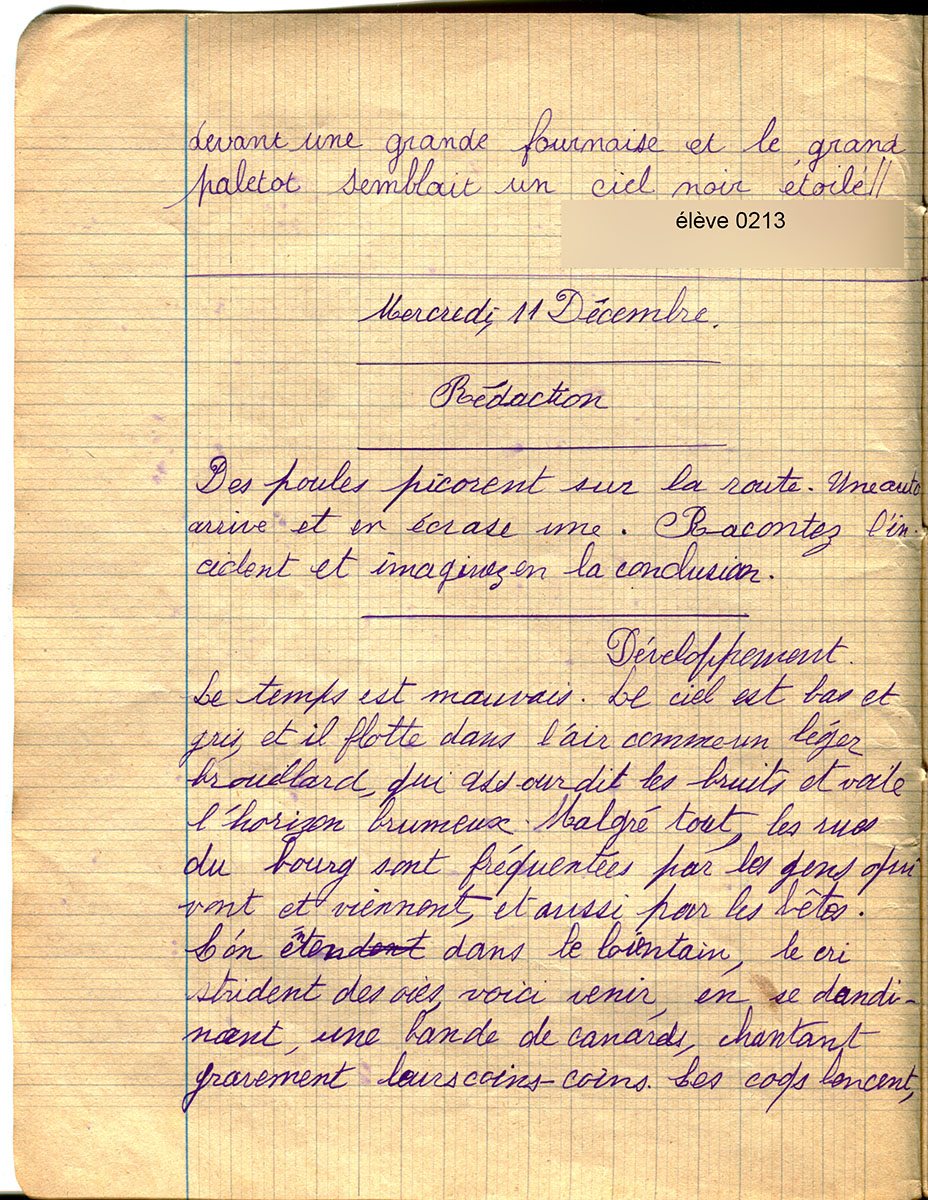 devant une grande fournaise et le grand
paletot semblait un ciel noir étoilé//
élève 0213
Mercredi, 11 Décembre.
Rédaction
Des poules picorent sur la route. Une auto
arrive et en écrase une. Racontez l'in-
cident et imaginez en la conclusion.
Développement.
Le temps est mauvais. Le ciel est bas et
gris, et il flotte dans l'air comme un léger
brouillard, qui assourdit les bruits et voile
l'horizon brumeux. Malgré tout, les rues
du bourg sont fréquentées par les gens qui
vont et viennent, et aussi par les bêtes.
L'on dans le lointain, le cri
strident des oies, voici venir, en se dandi-
nant, une bande de canards, chantant
gravement leurs coins-coins. Les coqs lancent,